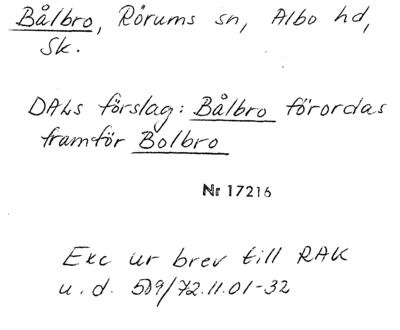 Bålbro, Rörums sn, Albo hd,
Sk.
DALs förslag: Bålbro förordas
framför Bolbro
Nr 17216
Exc ur brev till RAK
u.d. 509/72.11.01-32